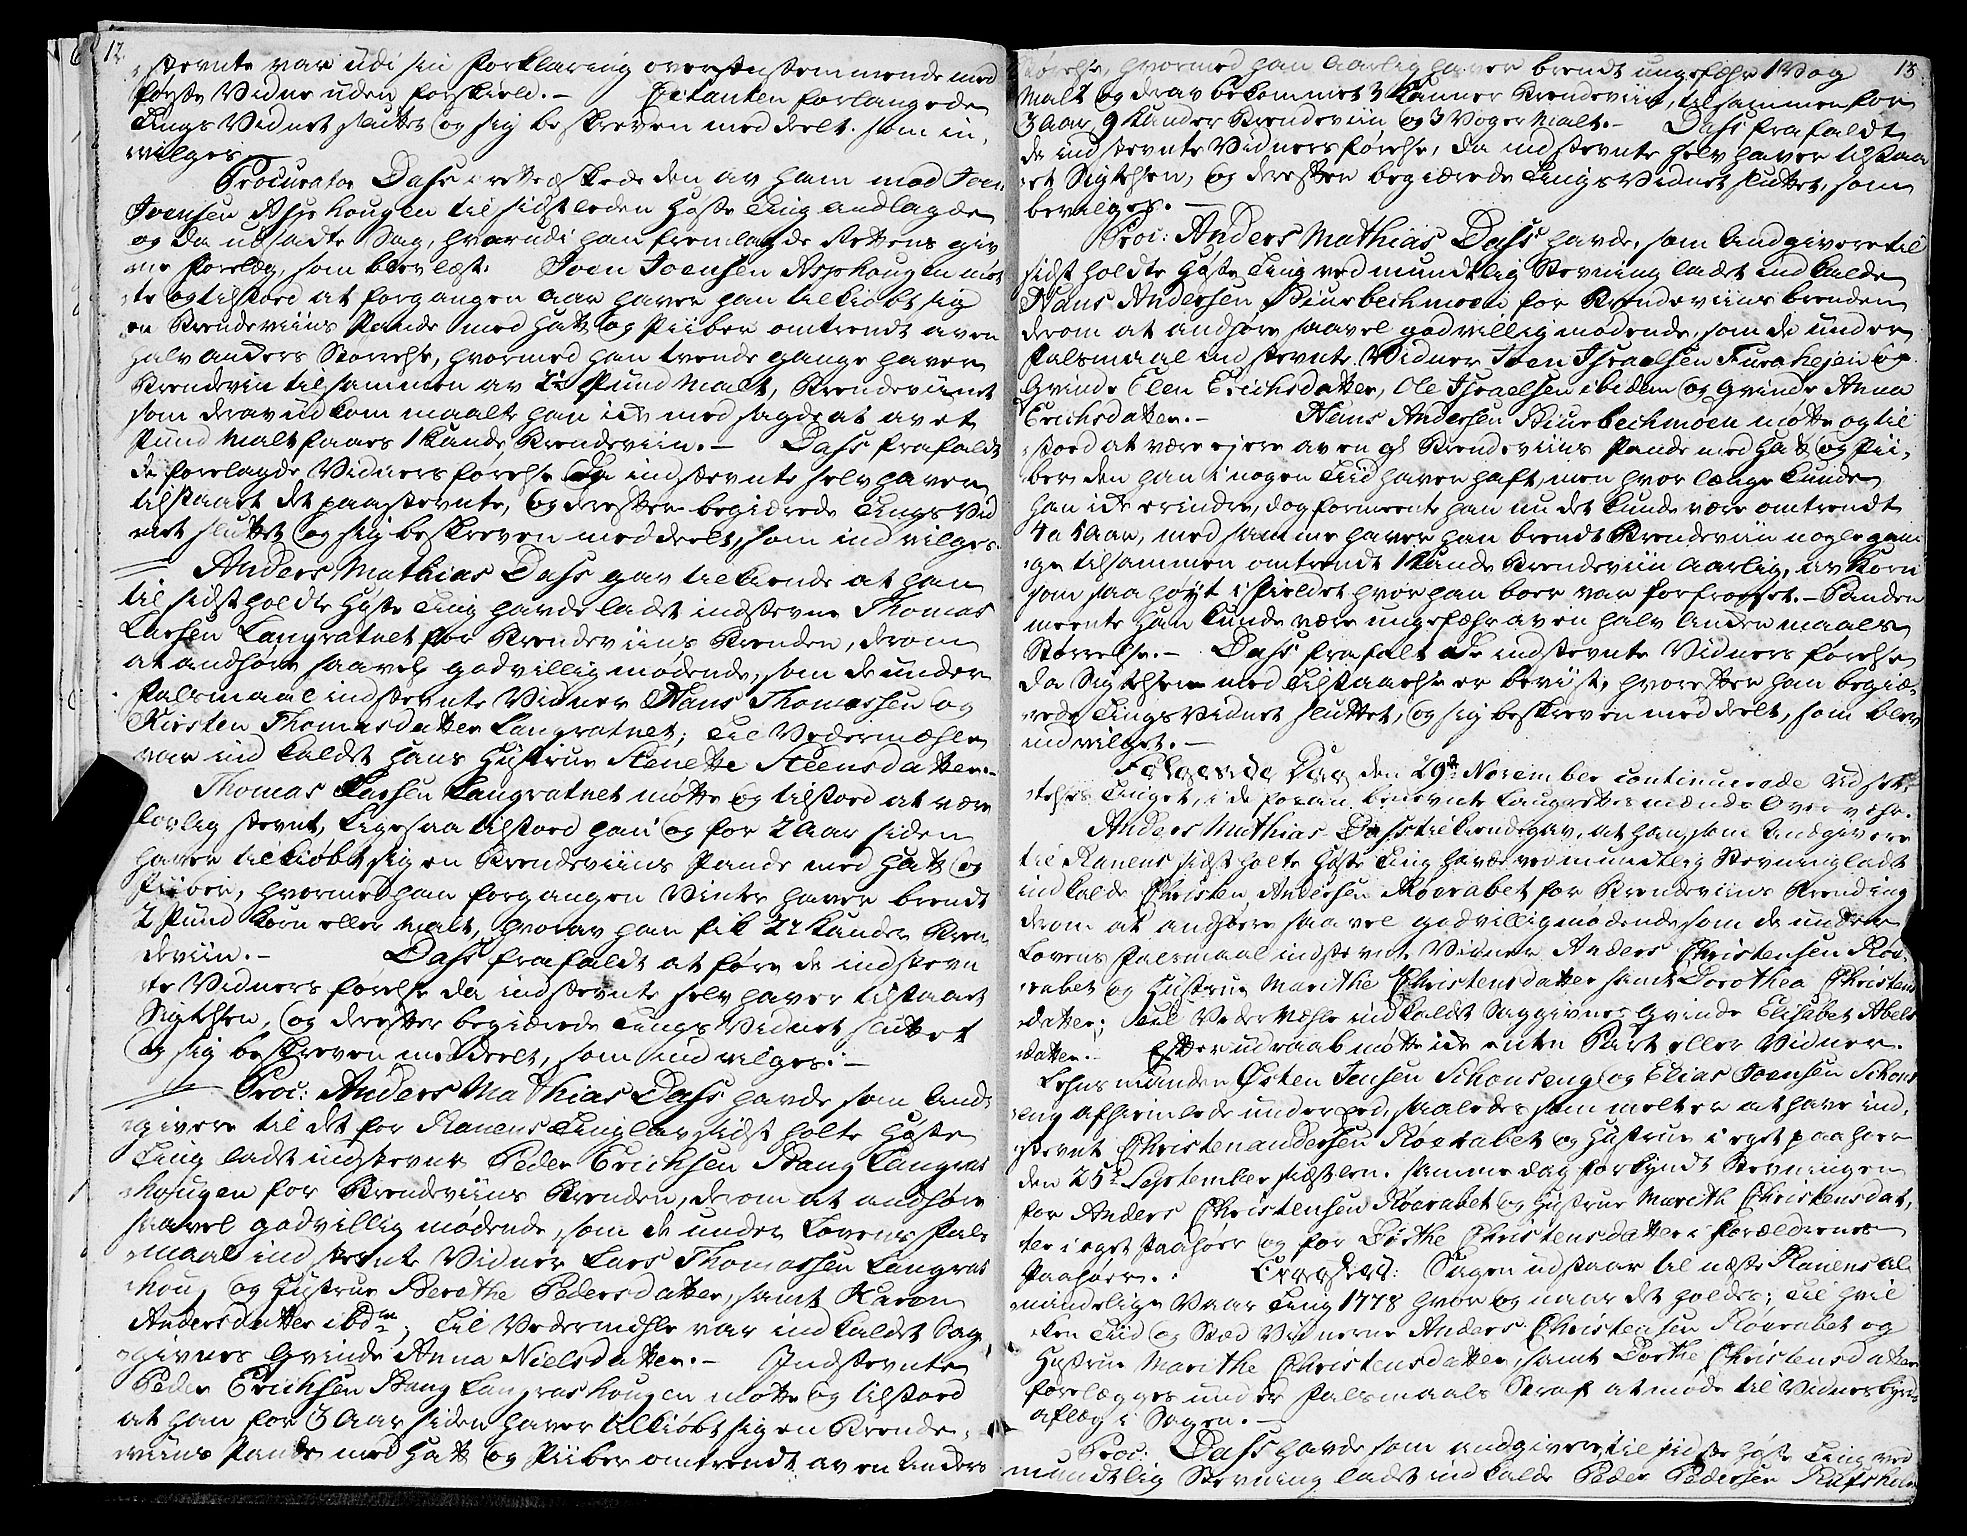 12.
stevnte var udi sin forklaring overeensstemmende med
første Vidne uden forskield. – Citanten forlangede
Tings Vidnet sluttet og sig beskreven meddeelt. som in,
vilges.
Procurator Dass i rette æskede den av ham mod Joen
Joensen Asphougen til sidstleden Høste Ting andlagde
og da udsadte Sag, hvorudi han fremlagde Rettens giv
ne forelæg, som blev læst. Joen Joensen Asphougen møt
te og tilstoed at forgangen aar haver han tilkiøbt sig
en Brendeviins Pande med Hatt og Piiber omtrendt av en
halv anders Størrelse, hvormed han trende gange haver
Brendeviin tilsammen av 2½ Pund Malt, Brendeviinet
som derav udkom maalte han icke med sagde at av et
Pund Malt faaes 1 kande Brendeviin. – Dass frafaldt
de forelagde Vidners førelse da indstevnte selv haver
tilstaaet det paastevnte, og derefter begiærede Tings Vid
net sluttet og sig beskreven meddeelt, som indvilges.
Anders Mathias Dass gav tilkiende at han
til sidstholdte Høste Ting havde ladet indstevne Thomas
Larsen Langvatnet for Brendeviins Brenden, derom
at andhøre saavel godvillig mødende, som de under
Falsmaal indstevnte Vidner Hans Thomassen og
Kirsten Thomasdatter Langvatnet; Til Vedermæhle
var indkaldet hans Hustrue Stenette Steensdatter. –
Thomas Larsen Langvatnet møtte og tilstoed at være
lovlig stevnt, ligesaa tilstoed han og for 2 Aar siden
haver tilkiøbt sig en Brendeviins Pande med Hatt og
Piiber, hvormed han forgangen Vinter haver brendt
2 Pund korn eller malt, hvorav han fik 2½ kander Bren
deviin. – Dass frafaldt at føre de indstevn
te Vidners førelse da indstevnte selv haver tilstaaet
Sigtelsen, og derefter begiærede Tings Vidnet sluttet
og sig beskreven meddeelt, som indvilges. –
Proc: Anders Mathias Dass havde som And,
givere til det for Ranens Tinglav sidst holte Høste
Ting ladet indstevne Peder Erichsen Stang Langvas
hougen for Brendeviins Brenden, derom at andhøre
saavel godvillig mødende, som de under Lovens Fals
maal indstevnte Vidner Lars Thomassen Langvas
houg og Hustrue Berethe Pedersdatter, samt Karen
Andersdatter ibdm; Til Vedermæhle var indkaldet Sag,
givnes Qvinde Anna Nielsdatter. – Indstevnte
Peder Erichsen Stang Langvashougen møtte og tilstoed
at han for 3 Aar siden haver tilkiøbt sig en Brende,
viins Pande med Hatt og Piiber omtrendt av en Anders
13
Størrelse, hvormed han Aarlig haver brendt ungefæhr 1 Vog
Malt og derav bekommet 3 kanner Brendeviin, tilsammen for
3 Aar 9 kander Brendeviin og 3 Voger Malt. – Dass frafaldt
de indstevnte Vidners førelse, da indstevnte selv haver tilstaa
et Sigtelsen, og derefter begiærede Tings Vidnet sluttet, som
bevilges. –
Proc: Anders Mathias Dass havde, som Andgivere til
sidst holdte Høste Ting ved mundtlig Stevning ladet indkalde
Hans Andersen Biurbechmoen for Brendeviins brenden
derom at andhøre saavel godvillig mødende, som de under
Falsmaal indstevnte Vidner Iver Israelsen Furuhejen og
Qvinde Elen Erichsdatter, Ole Israelsen ibidem og Qvinde Anna
Erichsdatter. – Hans Andersen Biurbechmoen møtte og til
stoed at være ejere av en gl. Brendeviins Pande med Hatt og Pii,
ber den han i nogen Tiid haver haft, men hvor længe kunde
han icke erindre, dog formeente han nu det kunde være omtrendt
4 a 5 Aar, med samme haver han brendt Brendeviin nogle gan
ge tilsammen omtrendt 1 kande Brendeviin Aarlig, av korn
som saa høyt i fieldet hvor han boer var forfrosset. – Panden
meente han kunde være ungefæhr av en halv Anden maals
Størrelse. – Dass frafalt de indstevnte Vidners førelse
da Sigtelsen med Tilstaaelse er bevist, hvorefter han begiæ,
rede Tings Vidnet sluttet, og sig beskreven meddeelt, som blev
indvilget. –
Følgende Dag den 29de November continuerede Ud sæt
telses Tinget, i de foran benevnte Laugrettesmænds Overvær.
Anders Mathias Dass tilkiendegav, at han som Andgivere
til Ranens sidst holte Høste Ting havde ved mundtlig Stevning ladt
indkalde Christen Andersen Røevabet for Brendeviins Brending
derom at andhøre saavel godvillig mødende som de under
Lovens Falsmaal indstevnte Vidner Anders Christensen Røe
vabet og Hustrue Marithe Christensdatter samt Dorothea Christens
datter; Til Vedermæhle indkaldt Saggivnes Qvinde Elisabet Abels
datter. – Efter udraab møtte icke enten Part eller Vidner.
Lehnsmanden Østen Jensen Schonseng og Elias Joensen Schons
eng afhiemlede under Eed, saaledes som melt er at have ind,
stevnt Christen Andersen Røevabet og Hustrue i eget paahør
den 25de September sidstlen. samme dag forkyndt Stevningen
for Anders Christensen Røevabet og Hustrue Marith Christensdat,
ter i eget Paahør og for Dorthe Christensdatter i forældrenes
Paahør. Eragtet: Sagen udstaar til næste Ranens al
mindelige Vaar Ting 1778 hvor og naar det holdes; Til hvil
ken Tiid og Stæd Vidnerne Anders Christensen Røevabet og
Hustrue Marithe Christensdatter, samt Dorthe Christensdatter
forelægges under Falsmaals Straf at møde til Vidnesbyrds
aflæg i Sagen. –
Proc: Dass havde som andgivere til sidste Høste Ting ved
mundtlig Stevning ladet indkalde Peder Pedersen